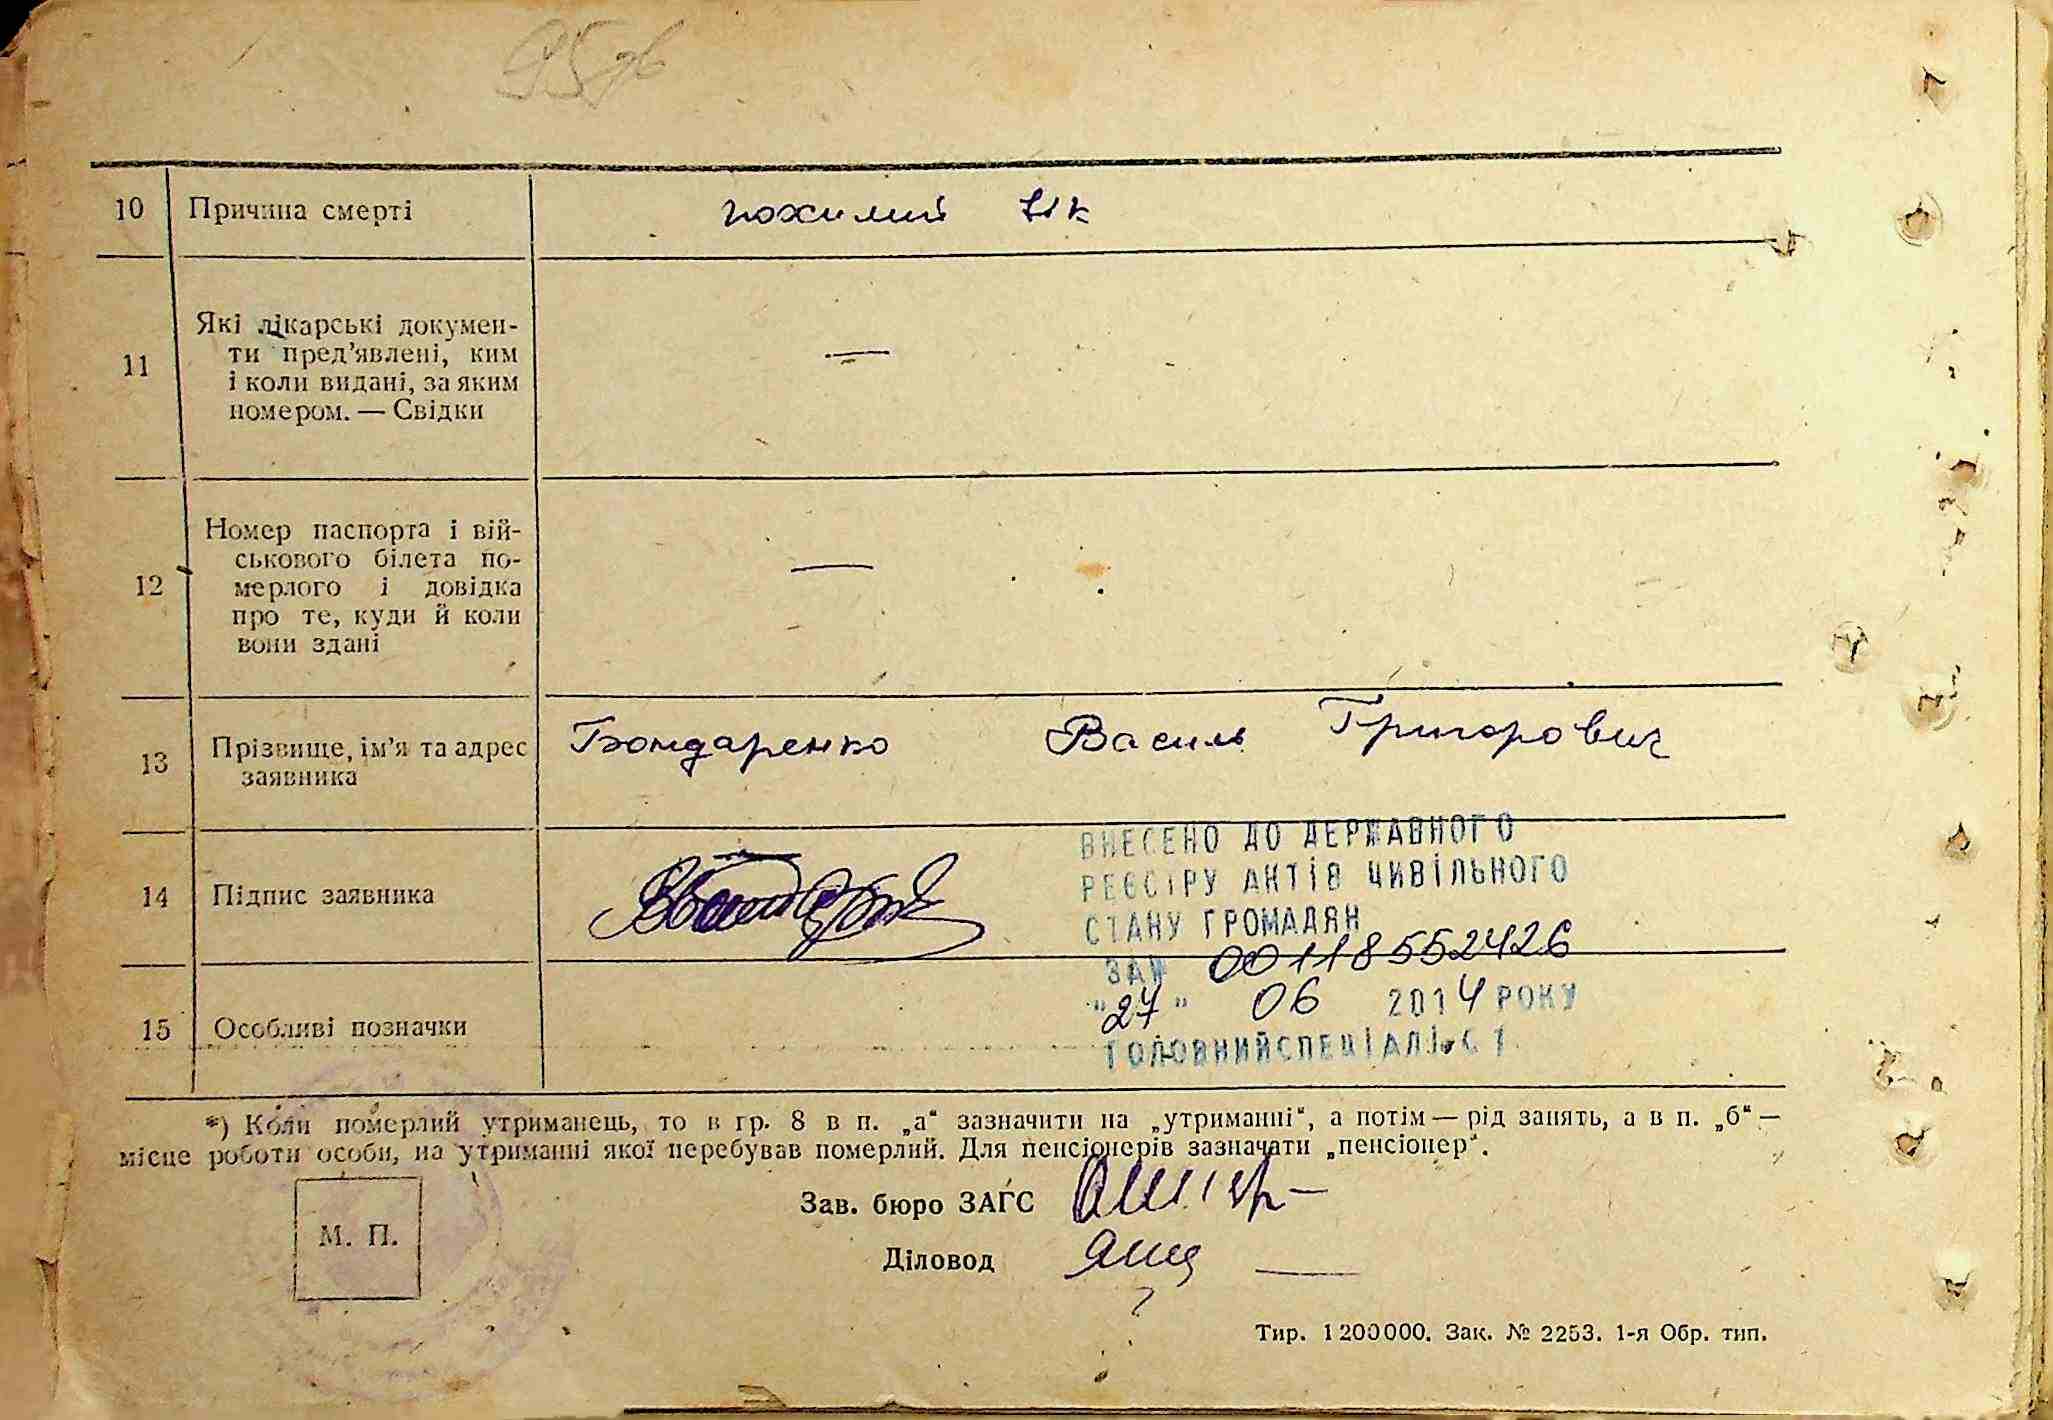 10 Причина смерті похилий вік
11 Які лікарські докумен-
ти пред’явлені, ким
і коли видані, за яким
номером. — Свідки —
12 Номер паспорта і вій-
ськового білета по-
мерлого і довідка
про те, куди й коли
вони здані —
13 Прізвище, ім’я та адрес
заявника Бондаренко Василь Григорович
14 Підпис заявника
ВНЕСЕНО ДО ДЕРЖАВНОГО
РЕЄСТРУ АКТІВ ЦИВІЛЬНОГО
СТАНУ ГРОМАДЯН
ЗА № 00118552426
"27" 06 2014 РОКУ
ГОЛОВНИЙ СПЕЦІАЛІСТ
15 Особливі позначки
*) Коли померлий утриманець, то в гр. 8 в п. „а“ зазначити на „утриманні“, а потім — рід занять, а в п. „б“ —
місце роботи особи, на утриманні якої перебував померлий. Для пенсіонерів зазначати „пенсіонер“.
Зав. бюро ЗАГС
М. П.
Діловод
Тир. 1200000. Зак. № 2253. 1-я Обр. тип.